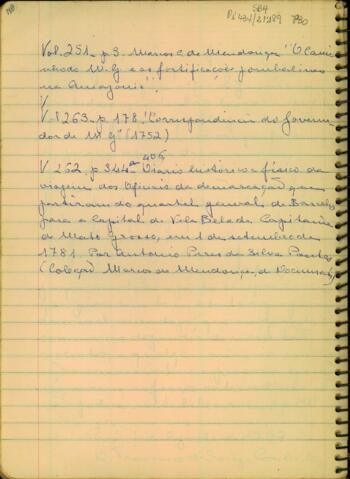 SB4
Vol. 251 - p 3 - Marcos C. de Mendonça "O Cami
nho do M. G e as fortificações pombalinas
na Amazonia"
V
V 263 - p. 178 "Correspondencia do Governa
dor de M. G" (1752)
405
V 262. p 344 a "Diario historico e fisico da
viagem dos Oficiais da demarcação que
partiram do quartel general de Barcelos
para a capital de Vila Bela da Capitania
de Mato Grosso, em 1 de setembro de
1781. Por Antonio Pires da Silva Pontes
(Coleção Marcos de Mendonça, de Documentos)